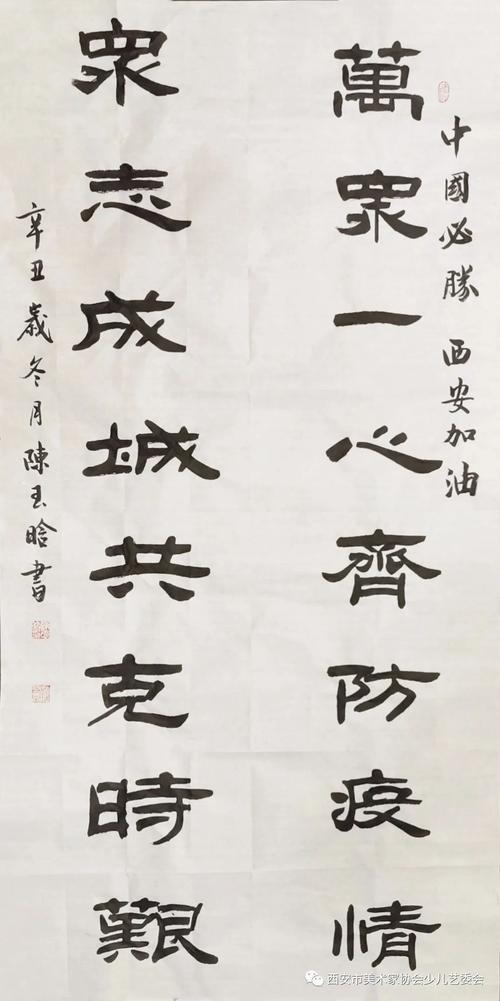 中國必勝 西安加油
萬眾一心齊防疫情
眾志成城共克時艱
辛丑歲冬月陳玉晗書
西安市美术家协会少儿艺委会